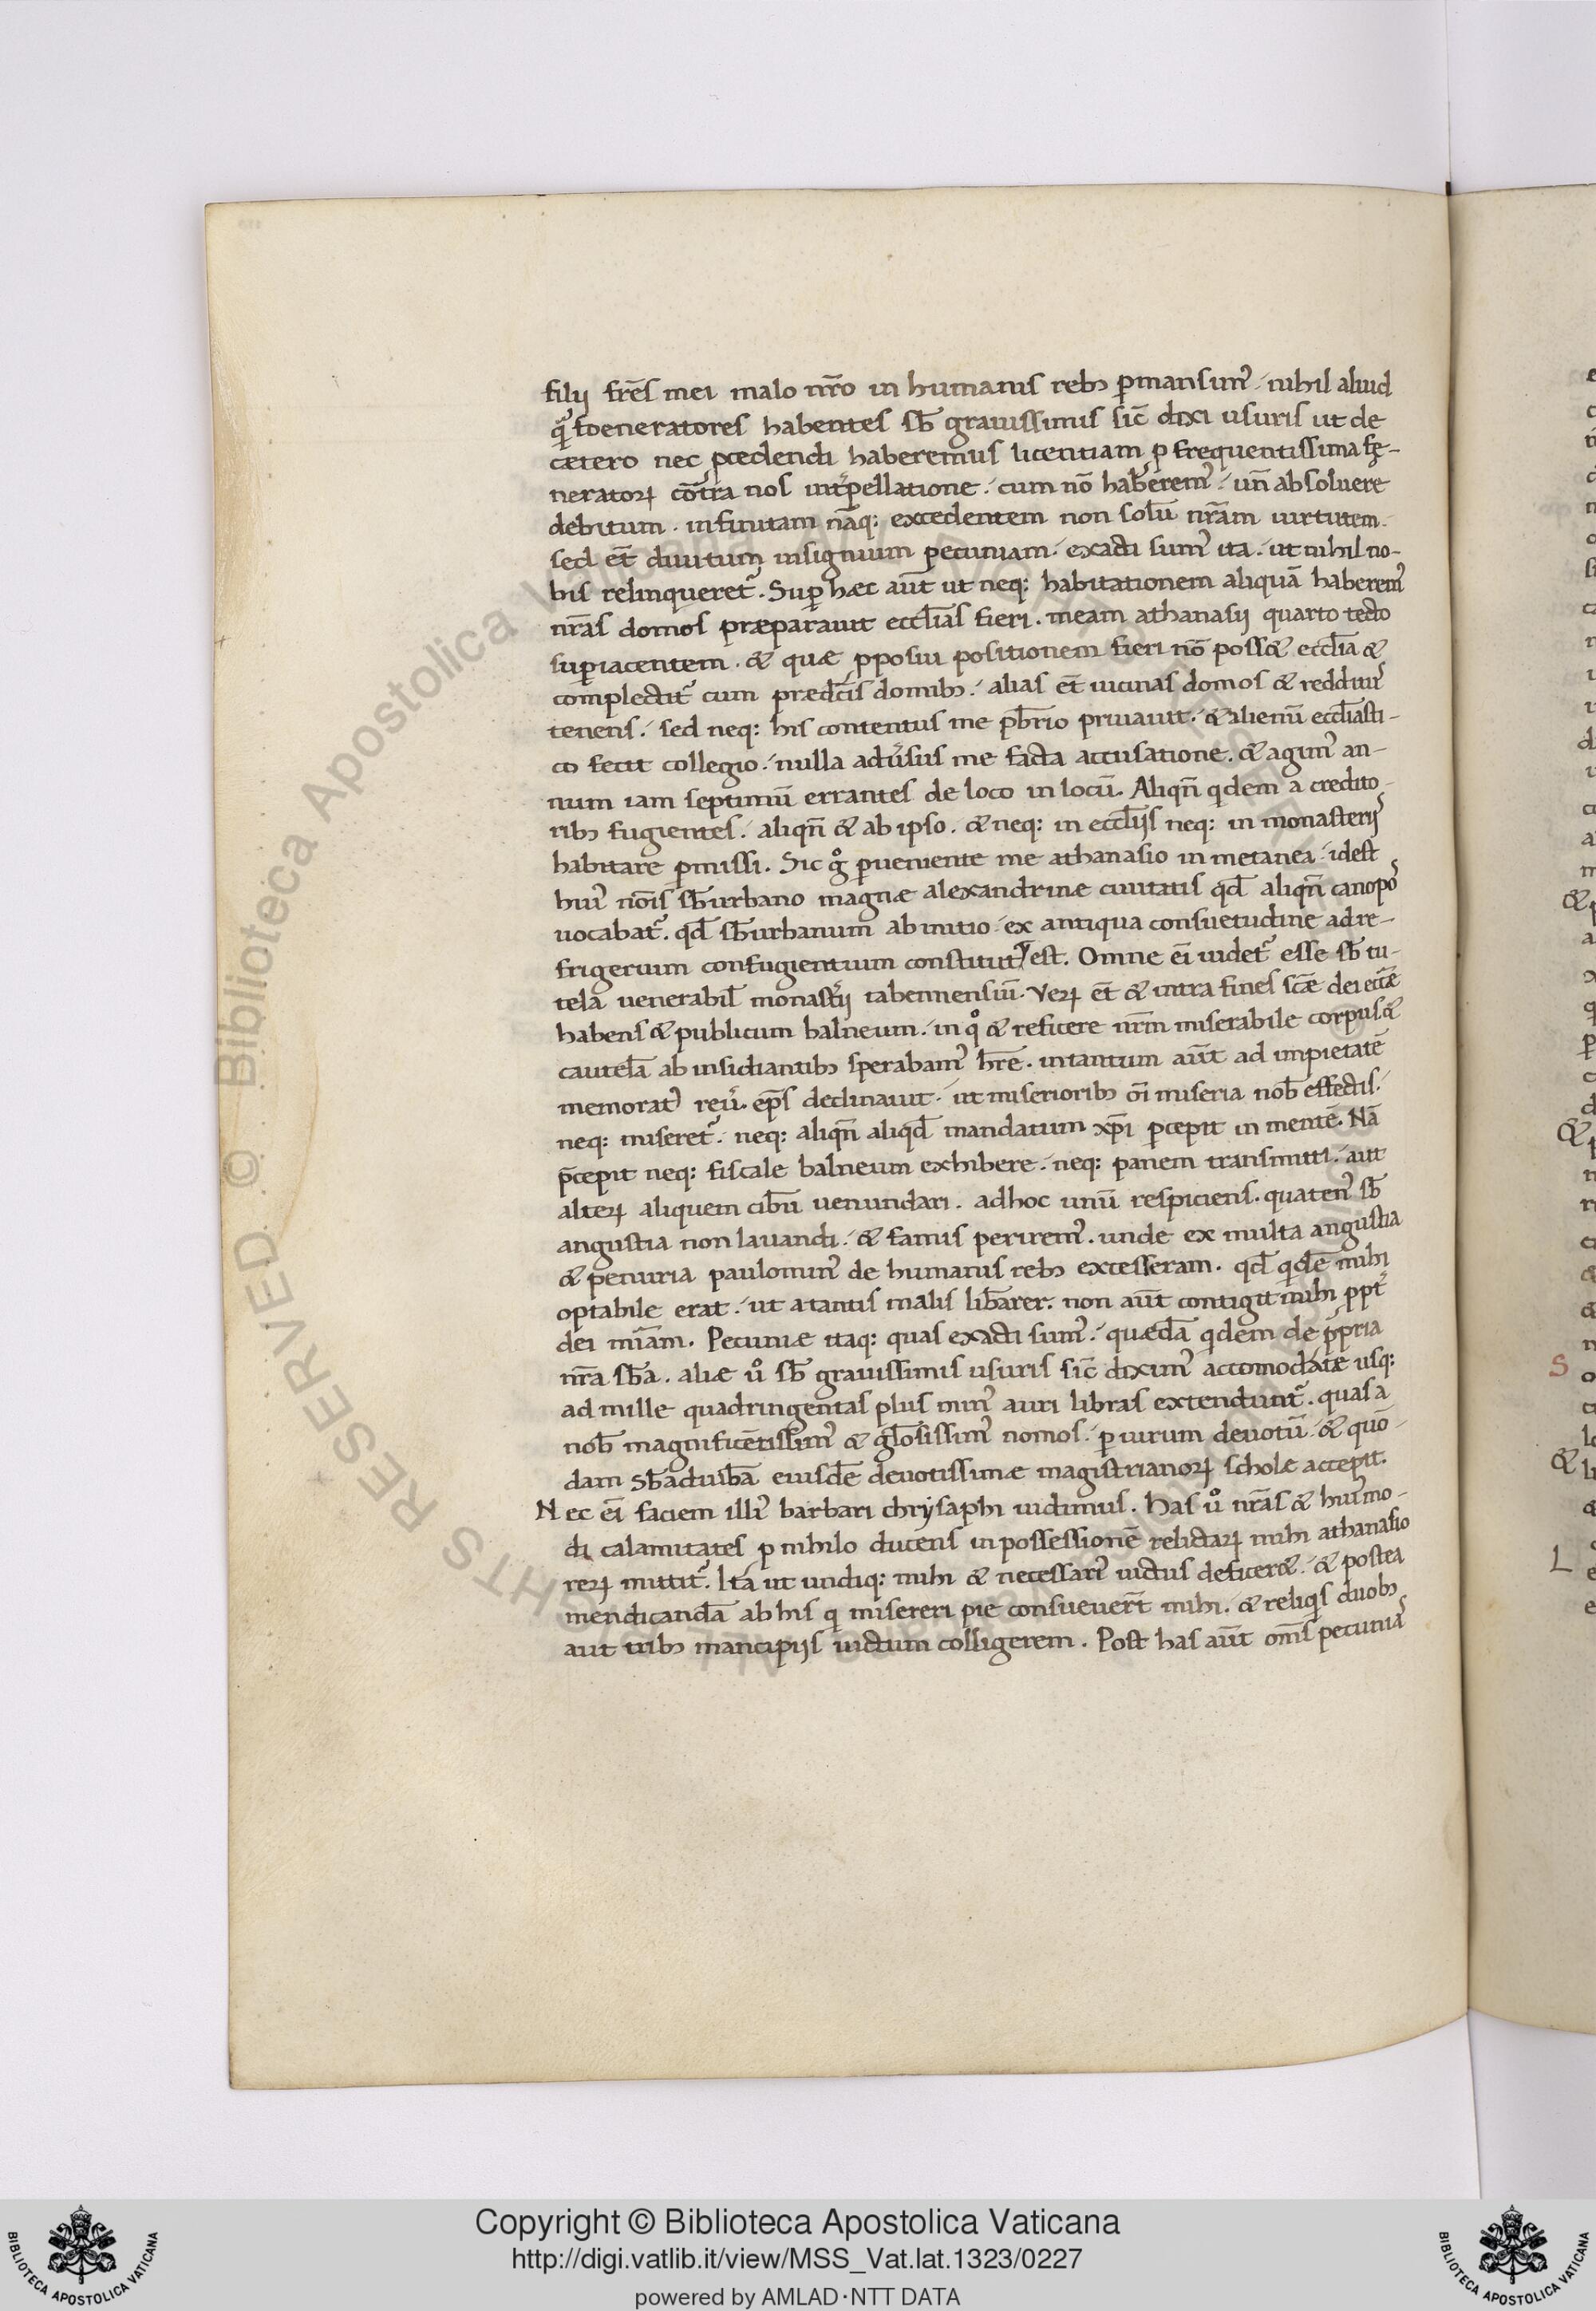 filij fr̄es mei malo nr̄o in humanis reb; ꝑmansim᷒. nihil aliud
q̄ foeneratores habentes sb̄ grauissimis sic̄ dixi usuris ut de
cetero nec ꝓcedendi haberemus licentiam ꝑ frequentissima fę-
neratoꝝ cōtra nos int̓pellatione. cum nō hab̓erem᷒. un̄ absoluere
debitum. infinitam nāq: excedentem non solū nr̄am uirtutem.
sed et̄ diuitum insignium pecuniam. exacti sum᷒ ita. ut nihil no-
bis relinqueret᷒. Suꝑ hæc aūt ut neq: habitationem aliquā haberem᷒
nr̄as domos præparauit eccl̄ias fieri. meam athanasij quarto tecto
suꝑiacentem. & quæ ꝓposui positionem fieri nō poss& eccl̄ia &
complectit᷒ cum prædc̄is domib;. alias et̄ uicinas domos & reddit᷒
tenens. sed neq: his contentus me pb̄rio priuauit. & alienū eccl̄iasti-
co fecit collegio. nulla adu̓sus me facta accusatione. & agim᷒ an-
num iam septimū errantes de loco in locū. Aliqn̄ qdem a credito-
rib; fugientes. aliqn̄ & ab ipso. & neq: in eccl̄ijs neq: in monasterijs
habitare ꝑmissi. Sic g̊ ꝑueniente me athanasio in metanea. idest
hui᷒ nōis sb̄urbano magnæ alexandrinæ ciuitatis qd̄ aliqn̄ canopo᷒
uocabat᷒. qd̄ sb̄urbanum ab initio. ex antiqua consuetudine ad re-
frigerium confugientium constitut᷒ est. Omne ei̅ uidet᷒ esse sb̄ tu-
tela uenerabil̄ monast̓ij tabennensiū. Veꝝ et̄ & intra fines sc̄æ dei ecc̄æ
habens & publicum balneum. in q̊ & reficere nr̄m miserabile corpus. &
cautelā ab insidiantib; sperabam᷒ hr̄e. intantum aūt ad impietatē
memorat᷒ reu̓. ep̄s declinauit. ut miseriorib; oī miseria nob̄ effectis.
neq: miseret᷒. neq: aliqn̄ aliqd̄ mandatum xp̄i ꝑcepit in mentē. Nā
p̄cepit neq: fiscale balneum exhibere. neq: panem transmitti. aut
alteꝝ aliquem cibū uenundari. adhoc unū respiciens. quaten᷒ sb̄
angustia non lauandi. & famis perirem᷒. unde ex multa angustia
& penuria paulomin᷒ de humanis reb; excesseram. qd̄ qidē mihi
optabile erat. ut a tantis malis lib̄arer. non aūt contigit mihi ꝓpt̓
dei miām. Pecuniæ itaq: quas exacti sum᷒. quædā qdem de ꝓpria
nr̄a sb̄a. aliæ ů sb̄ grauissimis usuris sic̄ dixim᷒ accomodatæ usq:
ad mille quadringentas plus min᷒ auri libras extendunt᷒. quas a
nob̄ magnificētissim᷒ & gl̄osissim᷒ nomos. ꝑ uirum deuotū. & quō-
dam Sb̄aduibā eiusdē deuotissimæ magistrianoꝝ scholæ accepit.
Nec ei̅ faciem illi᷒ barbari chrysaphi uidimus. Has ů nr̄as & hui᷒mo-
di calamitates ꝑ nihilo ducens in possessionē relictaꝝ mihi athanasio
reꝝ mittit᷒. Ita ut undiq: mihi & necessari᷒ uictus deficer&. & postea
mendicandā ab his q misereri pie consueuer̄t mihi. & reliqis duob;
aut trib; mancipijs uictum colligerem. Post has aūt om̄s pecunias
Copyright © Biblioteca Apostolica Vaticana
http://digi.vatlib.it/view/MSS_Vat.lat.1323/0227
powered by AMLAD·NTT DATA